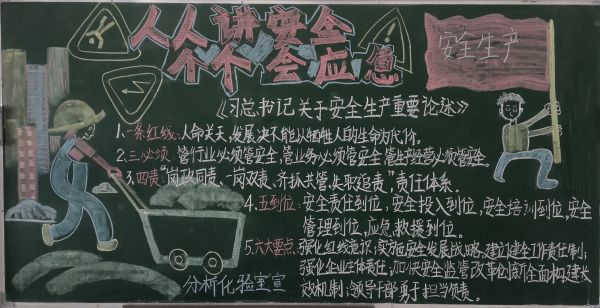 人人讲安全
个个会应急
安全生产
《习总书记关于安全生产重要论述》
1、一条红线:人命关天,发展决不能以牺牲人的生命为代价。
2、三必须:管行业必须管安全,管业务必须管安全,管生产经营必须管安全。
3、四责“党政同责、一岗双责、齐抓共管、失职追责”责任体系.
4、五到位:安全责任到位,安全投入到位,安全培训到位,安全
管理到位,应急救援到位。
5、六大要点:强化红线意识;实施安全发展战略;建立健全工作责任制;
强化企业主体责任;加快安全监管改革创新;全面构建长
效机制;领导干部勇于担当负责。
分析化验室宣